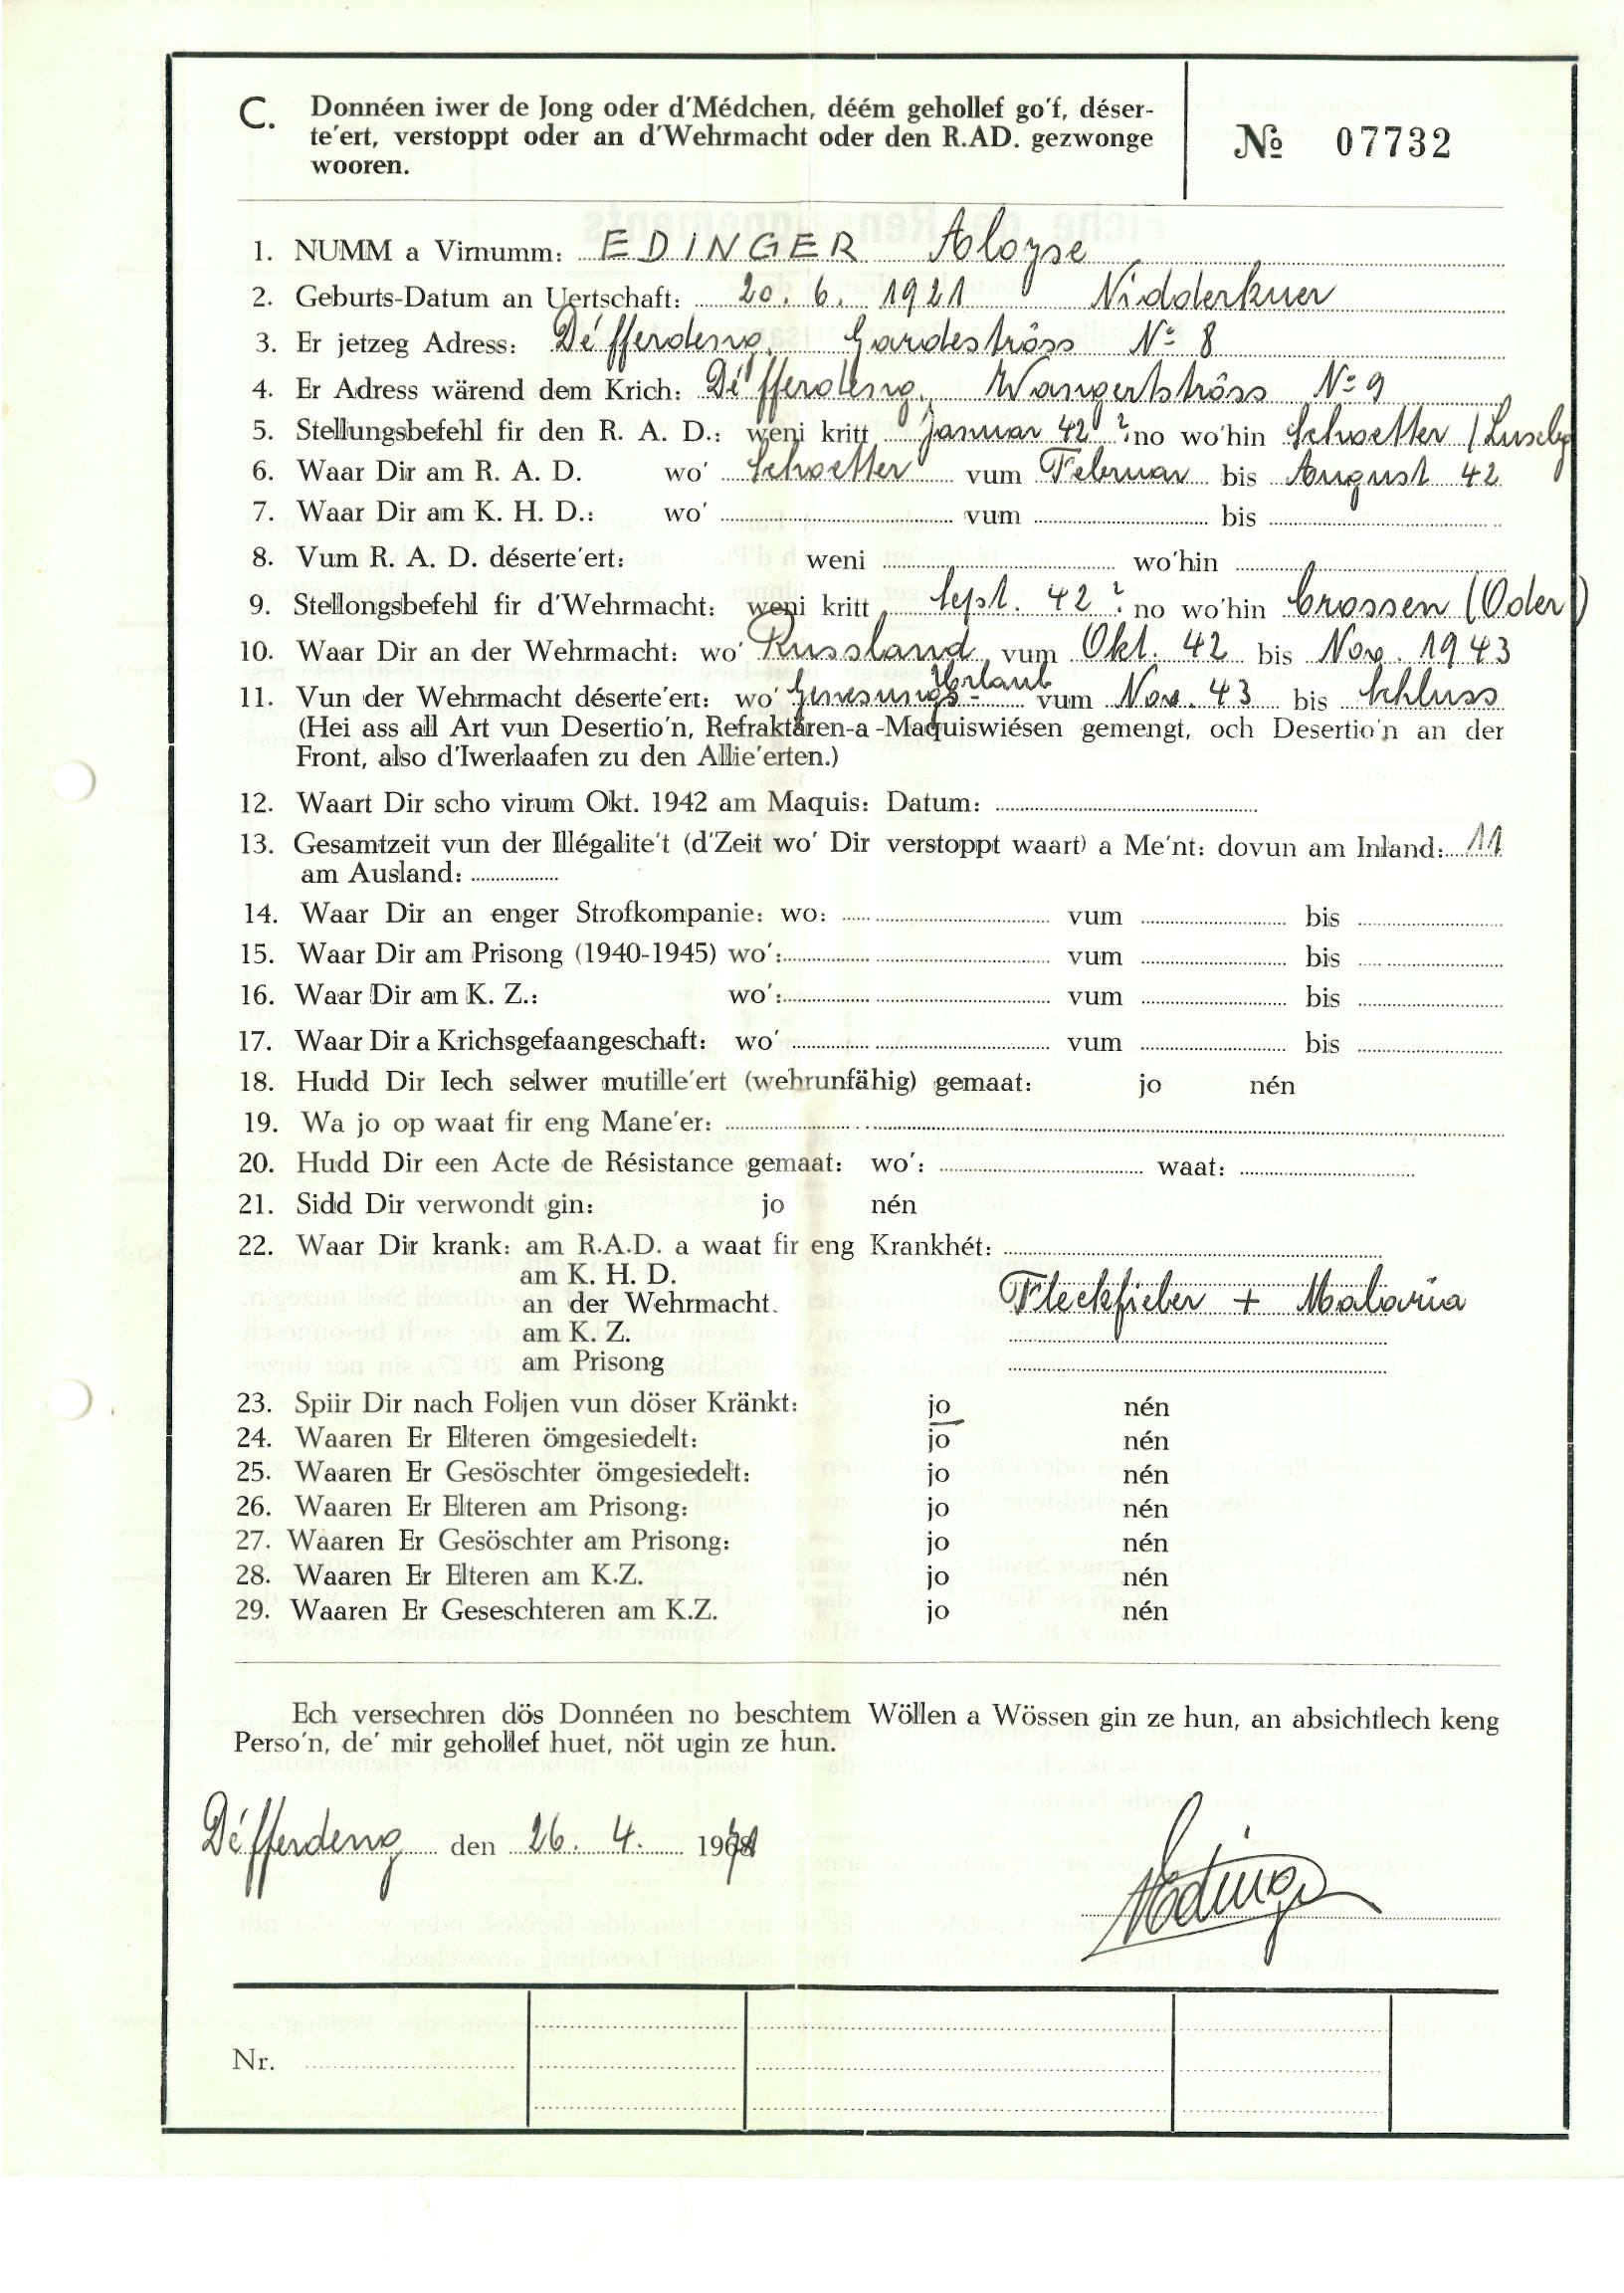 C. Donnéen iwer de Jong oder d'Médchen, déém gehollef go'f, déser-
te'ert, verstoppt oder an d'Wehrmacht oder den R.AD. gezwonge
wooren.
№ 07732
1. NUMM a Virnumm: EDINGER Aloyse
2. Geburts-Datum an Uertschaft: 20. 6. 1921 Nidderkuer
3. Er jetzeg Adress: Dé'fferdeng, Gardeströss No 8
4. Er Adress wärend dem Krich: Dé'fferdeng, Wangertströss No 9
5. Stellungsbefehl fir den R. A. D.: weni kritt Januar 42 ? no wo'hin Schoetter /
6. Waar Dir am R. A. D. wo' Schoetter vum Februar bis August 42
7. Waar Dir am K. H. D.: wo' vum bis
8. Vum R. A. D. déserte'ert: weni wo'hin
9. Stellongsbefehl fir d'Wehrmacht: weni kritt Sept. 42 ? no wo'hin Crossen (Oder)
10. Waar Dir an der Wehrmacht: wo' Russland vum Okt. 42 bis Nov. 1943
11. Vun der Wehrmacht déserte'ert: wo' Genesungs-Urlaub vum Nov. 43 bis Schluss
(Hei ass all Art vun Desertio'n, Refraktären-a -Maquiswiésen gemengt, och Desertio'n an der
Front, also d'Iwerlaafen zu den Allie'erten.)
12. Waart Dir scho virum Okt. 1942 am Maquis: Datum:
13. Gesamtzeit vun der Illégalite't (d'Zeit wo' Dir verstoppt waart) a Me'nt: dovun am Inland: 11
am Ausland:
14. Waar Dir an enger Strofkompanie: wo: vum bis
15. Waar Dir am Prisong (1940-1945) wo': vum bis
16. Waar Dir am K. Z.: wo': vum bis
17. Waar Dir a Krichsgefaangeschaft: wo' vum bis
18. Hudd Dir Iech selwer mutille'ert (wehrunfähig) gemaat: jo nén
19. Wa jo op waat fir eng Mane'er:
20. Hudd Dir een Acte de Résistance gemaat: wo': waat:
21. Sidd Dir verwondt gin: jo nén
22. Waar Dir krank: am R.A.D. a waat fir eng Krankhét:
am K. H. D.
an der Wehrmacht. Fleckfieber + Malaria
am K. Z.
am Prisong
23. Spiir Dir nach Foljen vun döser Kränkt: jo nén
24. Waaren Er Elteren ömgesiedelt: jo nén
25. Waaren Er Gesöschter ömgesiedelt: jo nén
26. Waaren Er Elteren am Prisong: jo nén
27. Waaren Er Gesöschter am Prisong: jo nén
28. Waaren Er Elteren am K.Z. jo nén
29. Waaren Er Geseschteren am K.Z. jo nén
Ech versechren dös Donnéen no beschtem Wöllen a Wössen gin ze hun, an absichtlech keng
Perso'n, de' mir gehollef huet, nöt ugin ze hun.
Dé'fferdeng den 26. 4. 19
Edinger
Nr.